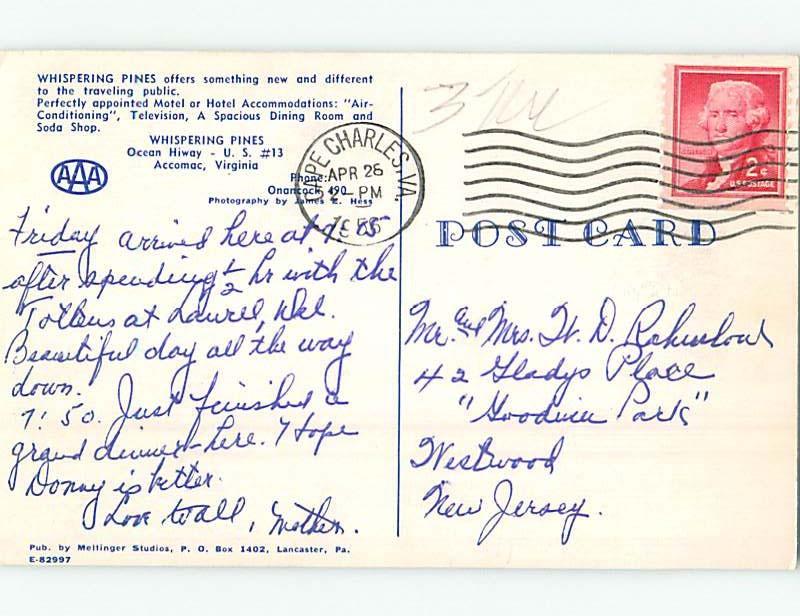 WHISPERING PINES offers something new and different
to the traveling public.
Perfectly appointed Motel or Hotel Accommodations: "Air-
Conditioning", Television, A Spacious Dining Room and
Soda Shop.
WHISPERING PINES
Ocean Hiway - U. S. #13
Accomac, Virginia
AAA
Phone:
Onancock 490
Photography by James E. Hess
Friday arrived here at
after spending 1/2 hr with the
at Laurel, Del.
Beautiful day all the way
down.
7:50. Just finished a
grand dinner here. I hope
Donny is better.
Love to all, Mother.
Pub. by Mellinger Studios, P. O. Box 1402, Lancaster, Pa.
E-82997
CAPE CHARLES, VA.
APR 26
PM
2¢
U.S. POSTAGE
POST CARD
Mr. and Mrs. W. D.
42 Gladys Place
Park"
Westwood
New Jersey.